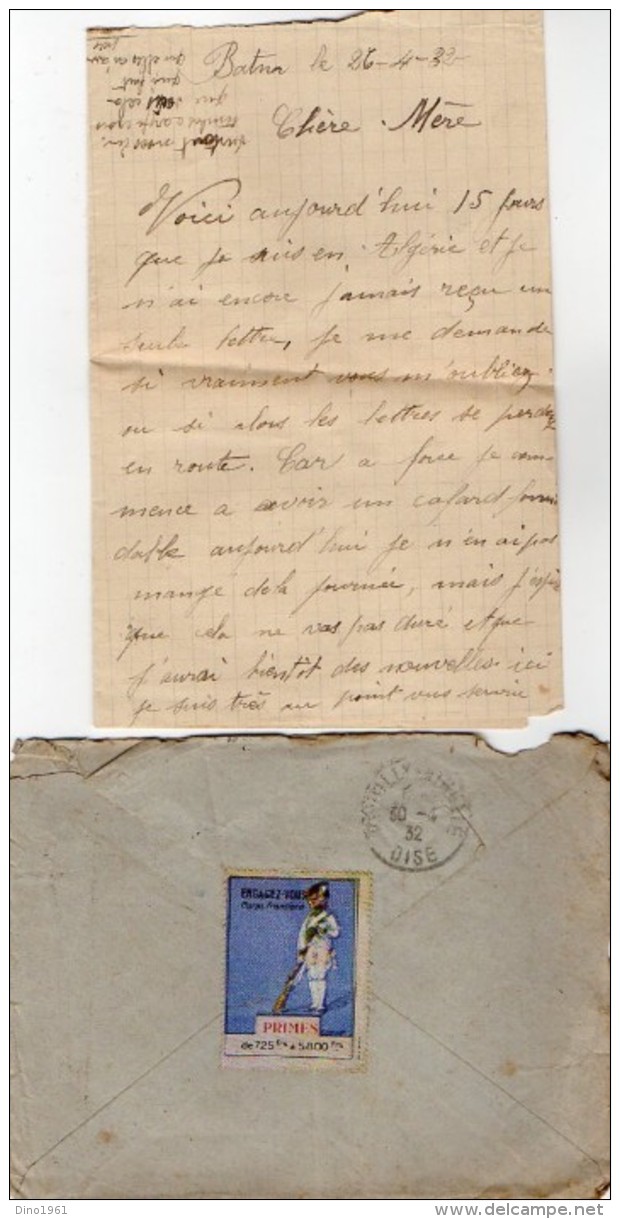 Batna le 26-4-32
Chère Mère
Voici aujourd'hui 15 jours
que je suis en Algérie et je
n'ai encore jamais reçu un
seule lettre, je me demande
si vraiment vous m'oubliez
ou si alors les lettres se perdez
en route. Car a force je com-
mence a avoir un cafard formi
dable aujourd'hui je n'en ai pas
mangé de la journée, mais j'espè
que cela ne vas pas duré et que
j'aurai bientôt des nouvelles. ici
je suis très au point vus service
30 -4
32
OISE
ENGAGEZ-VOUS
PRIMES
de 725 frs a 5800 frs
Dino1961